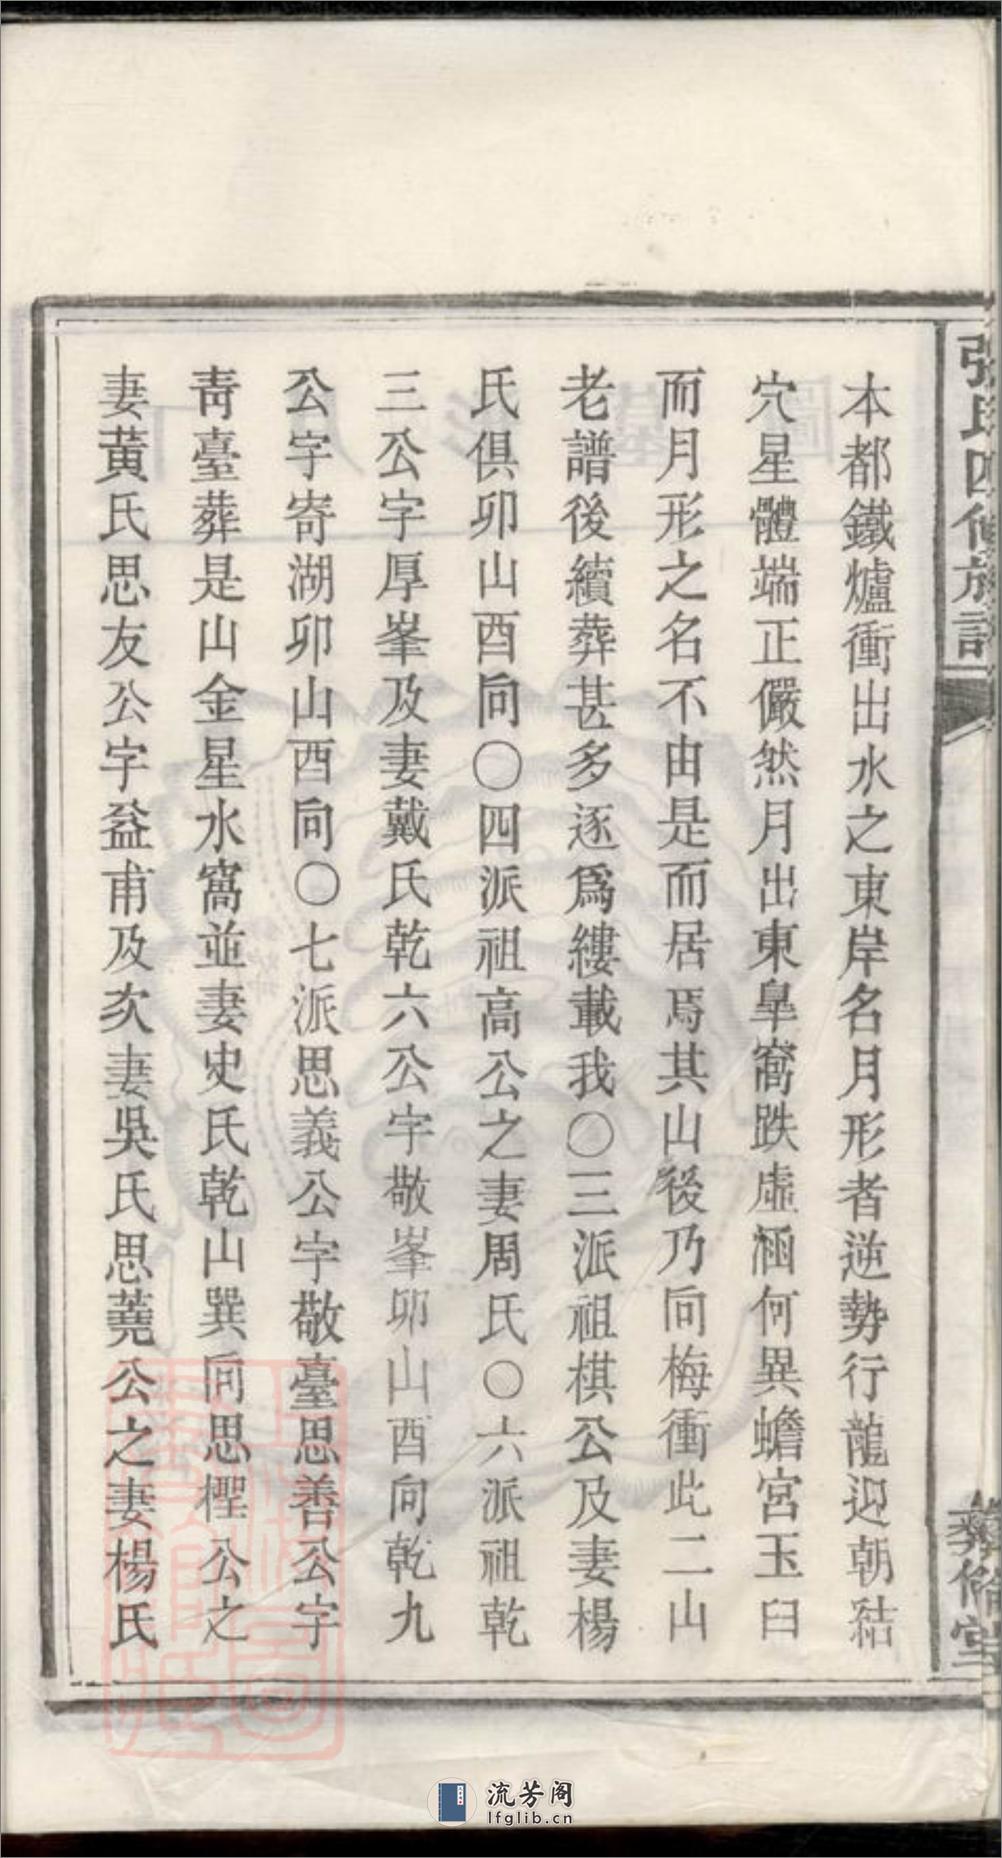 張氏四修族譜
本都鐵爐衝出水之東岸名月形者逆勢行龍迎朝結
穴星體端正儼然月出東皐窩跌虛涵何異蟾宮玉臼
而月形之名不由是而居焉其山後乃向梅衝此二山
老譜後續葬甚多逐爲縷載我〇三派祖棋公及妻楊
氏俱卯山酉向〇四派祖高公之妻周氏〇六派祖乾
三公字厚峯及妻戴氏乾六公字敬峯卯山酉向乾九
公字寄湖卯山酉向〇七派思義公字敬臺思善公字
靑臺葬是山金星水窩並妻史氏乾山巽向思檉公之
妻黃氏思友公字益甫及次妻吳氏思蕘公之妻楊氏
流芳阁
lfglib.cn